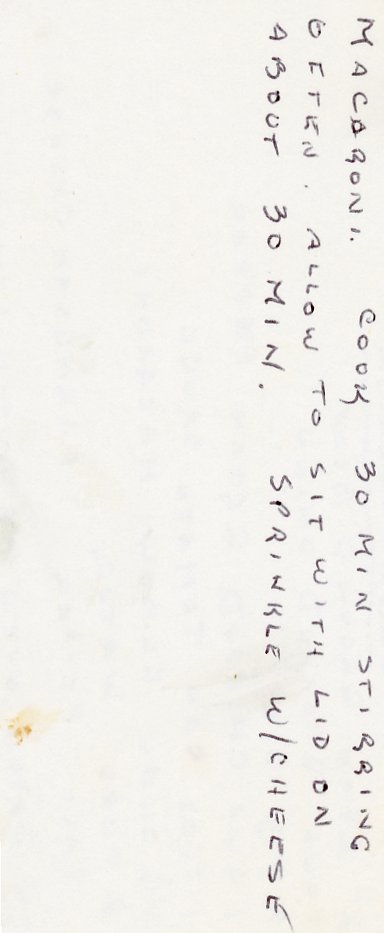 MACARONI. COOK 30 MIN STIRRING
OFTEN. ALLOW TO SIT WITH LID ON
ABOUT 30 MIN. SPRINKLE W/CHEESE